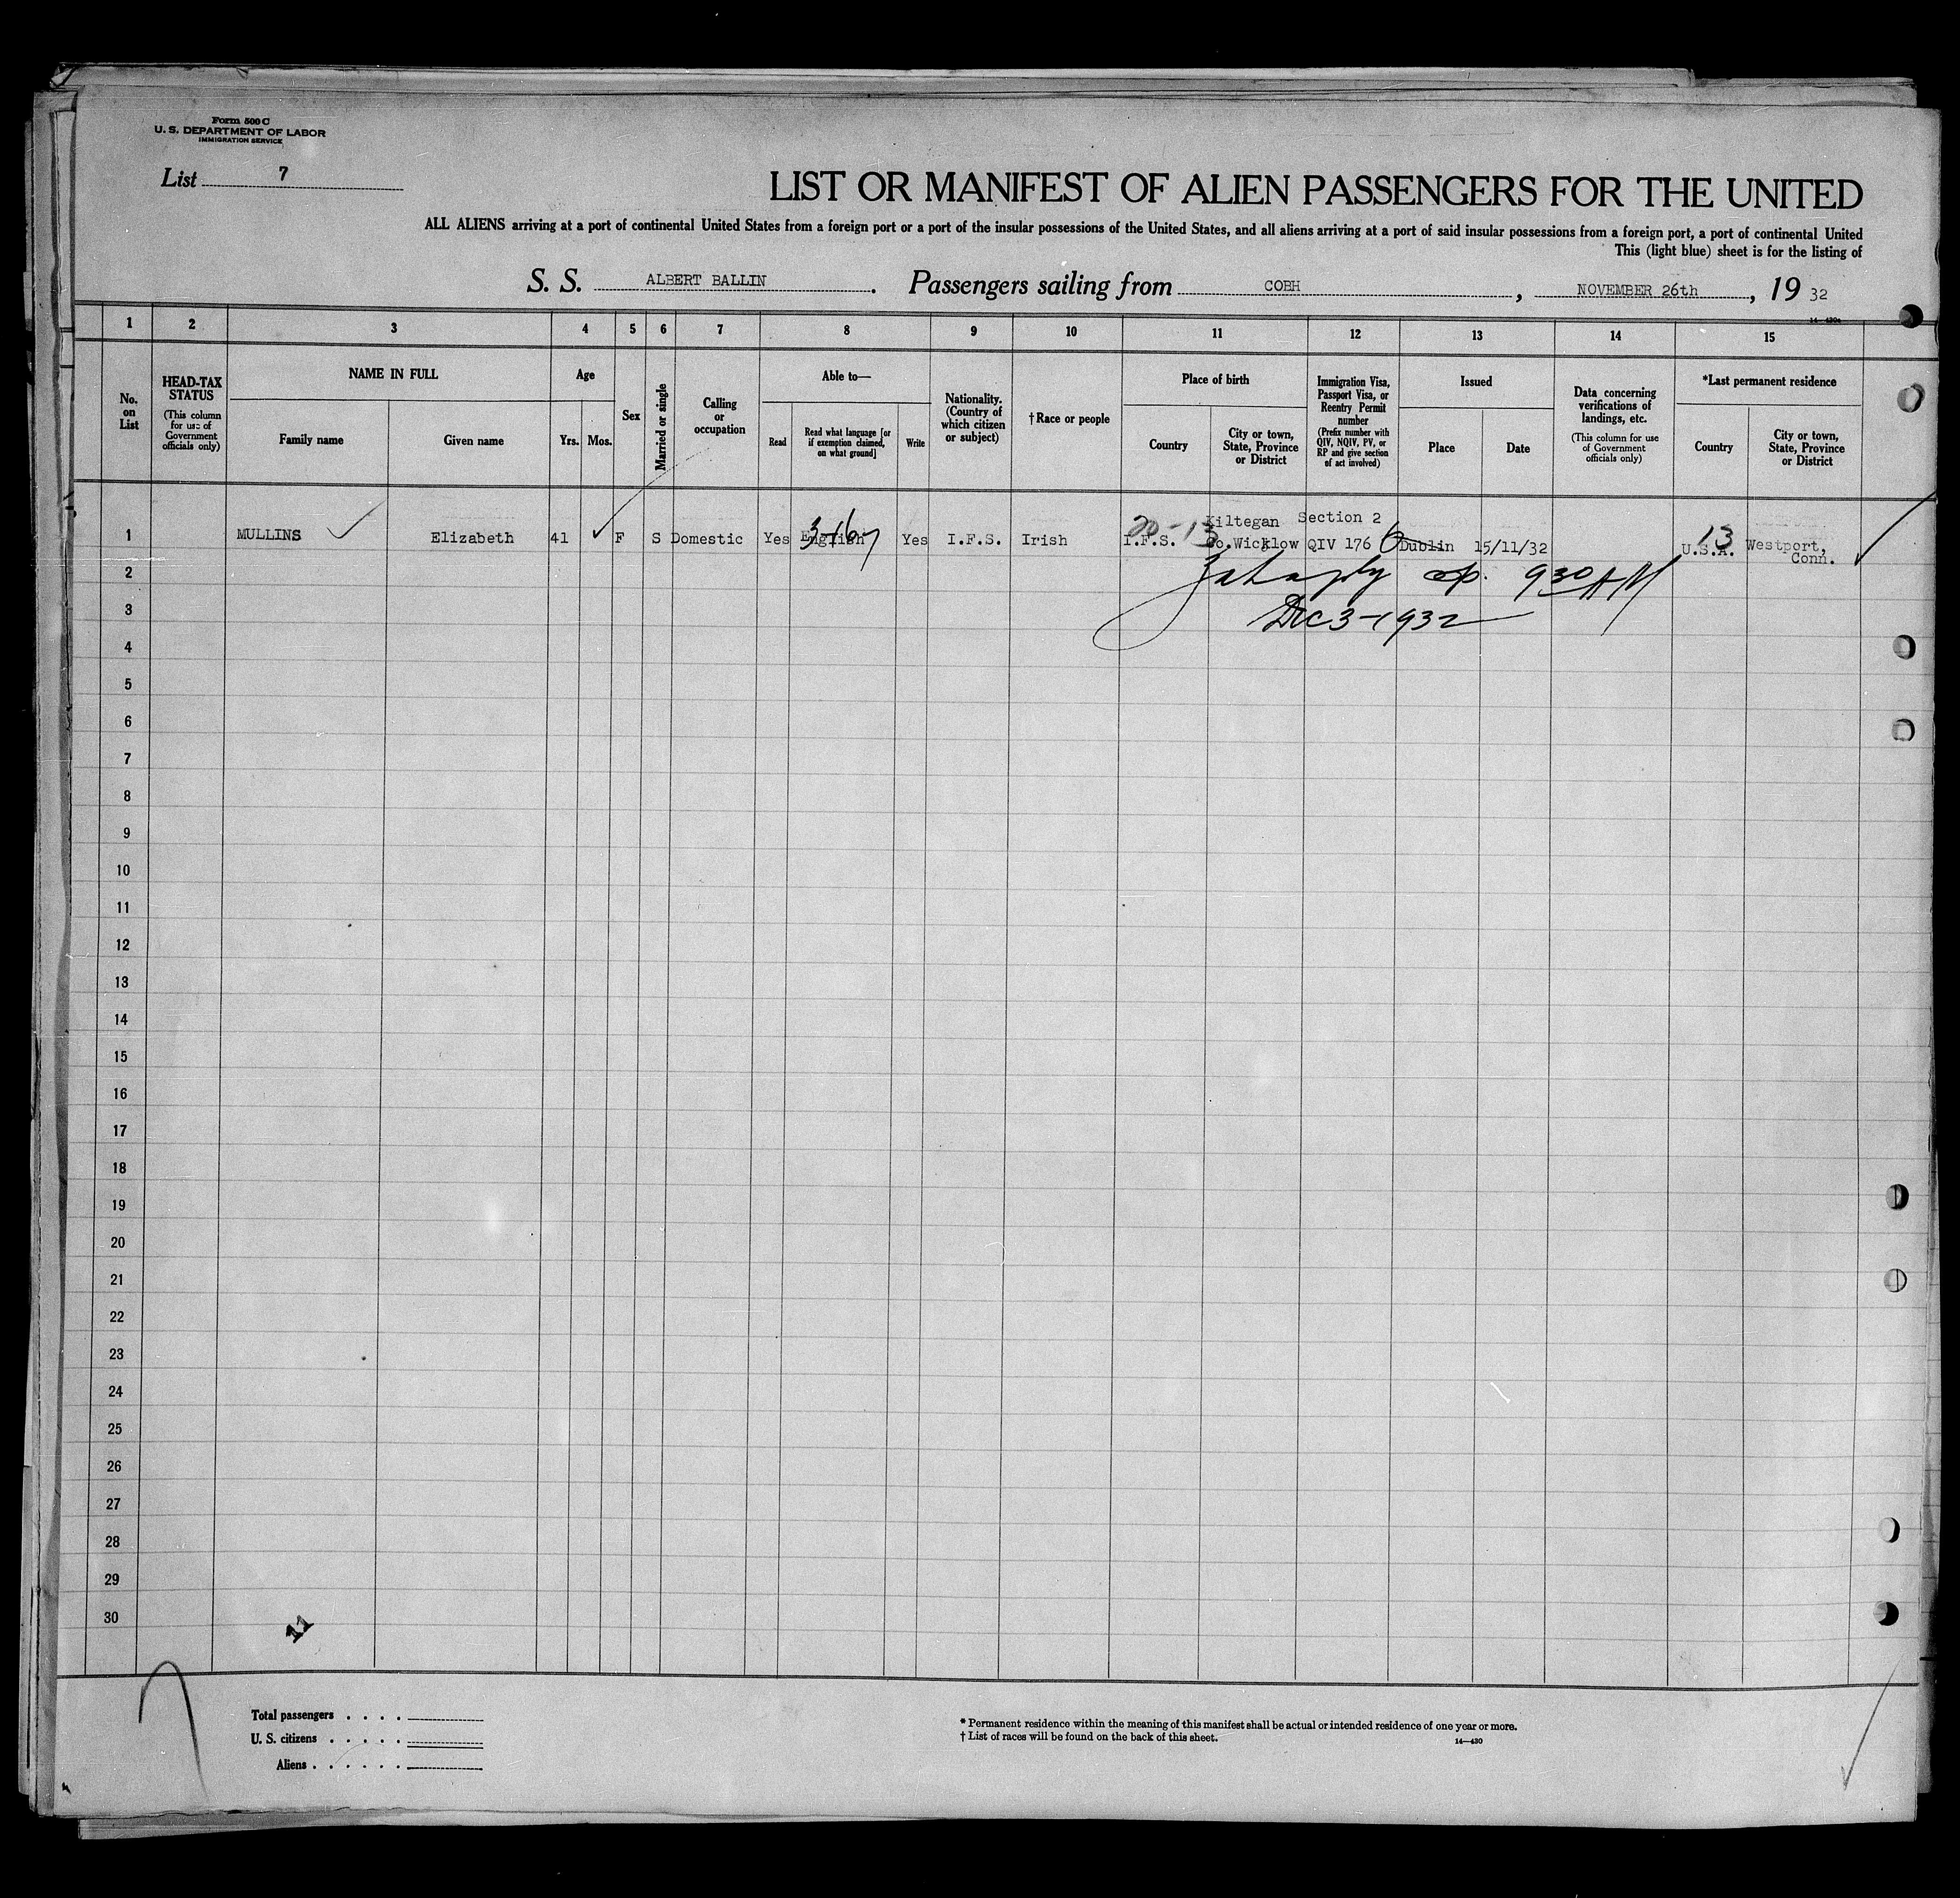 Form 500 C
U. S. DEPARTMENT OF LABOR
IMMIGRATION SERVICE
List 7
LIST OR MANIFEST OF ALIEN PASSENGERS FOR THE UNITED
ALL ALIENS arriving at a port of continental United States from a foreign port or a port of the insular possessions of the United States, and all aliens arriving at a port of said insular possessions from a foreign port, a port of continental United
This (light blue) sheet is for the listing of
S. S. ALBERT BALLIN. Passengers sailing from COBH, NOVEMBER 26th, 19 32
1 2 3 4 5 6 7 8 9 10 11 12 13 14 15
No. on List
HEAD-TAX STATUS
(This column for use of Government officials only)
NAME IN FULL
Family name
Given name
Age
Yrs.
Mos.
Sex
Married or single
Calling or occupation
Able to—
Read
Read what language [or if exemption claimed, on what ground]
Write
Nationality. (Country of which citizen or subject)
†Race or people
Place of birth
Country
City or town, State, Province or District
Immigration Visa, Passport Visa, or Reentry Permit number
(Prefix number with QIV, NQIV, PV, or RP and give section of act involved)
Issued
Place
Date
Data concerning verifications of landings, etc.
(This column for use of Government officials only)
*Last permanent residence
Country
City or town, State, Province or District
20-13 Kiltegan Section 2
1 MULLINS Elizabeth 41 F S Domestic Yes English 3-16 Yes I.F.S. Irish I.F.S. Co.Wicklow QIV 176 6 Dublin 15/11/32 13 U.S.A. Westport, Conn.
2 930 AM
3 Dec 3-1932
4
5
6
7
8
9
10
11
12
13
14
15
16
17
18
19
20
21
22
23
24
25
26
27
28
29
30
11
Total passengers . . . .
U. S. citizens . . . . .
Aliens . . . . . .
* Permanent residence within the meaning of this manifest shall be actual or intended residence of one year or more.
† List of races will be found on the back of this sheet.
14—430